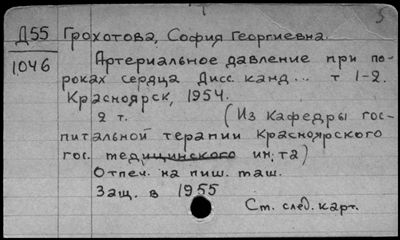 5
Д55 Грохотова, София Георгиевна.
1046 Артериальное давление при по-
роках сердца Дисс. канд... т 1-2.
Красноярск, 1954.
2 т. (Из Кафедры гос-
питальной терапии Красноярского
гос. медицинского ин;та)
Отпеч. на пиш. маш.
Защ. в 1955
См. след. карт.